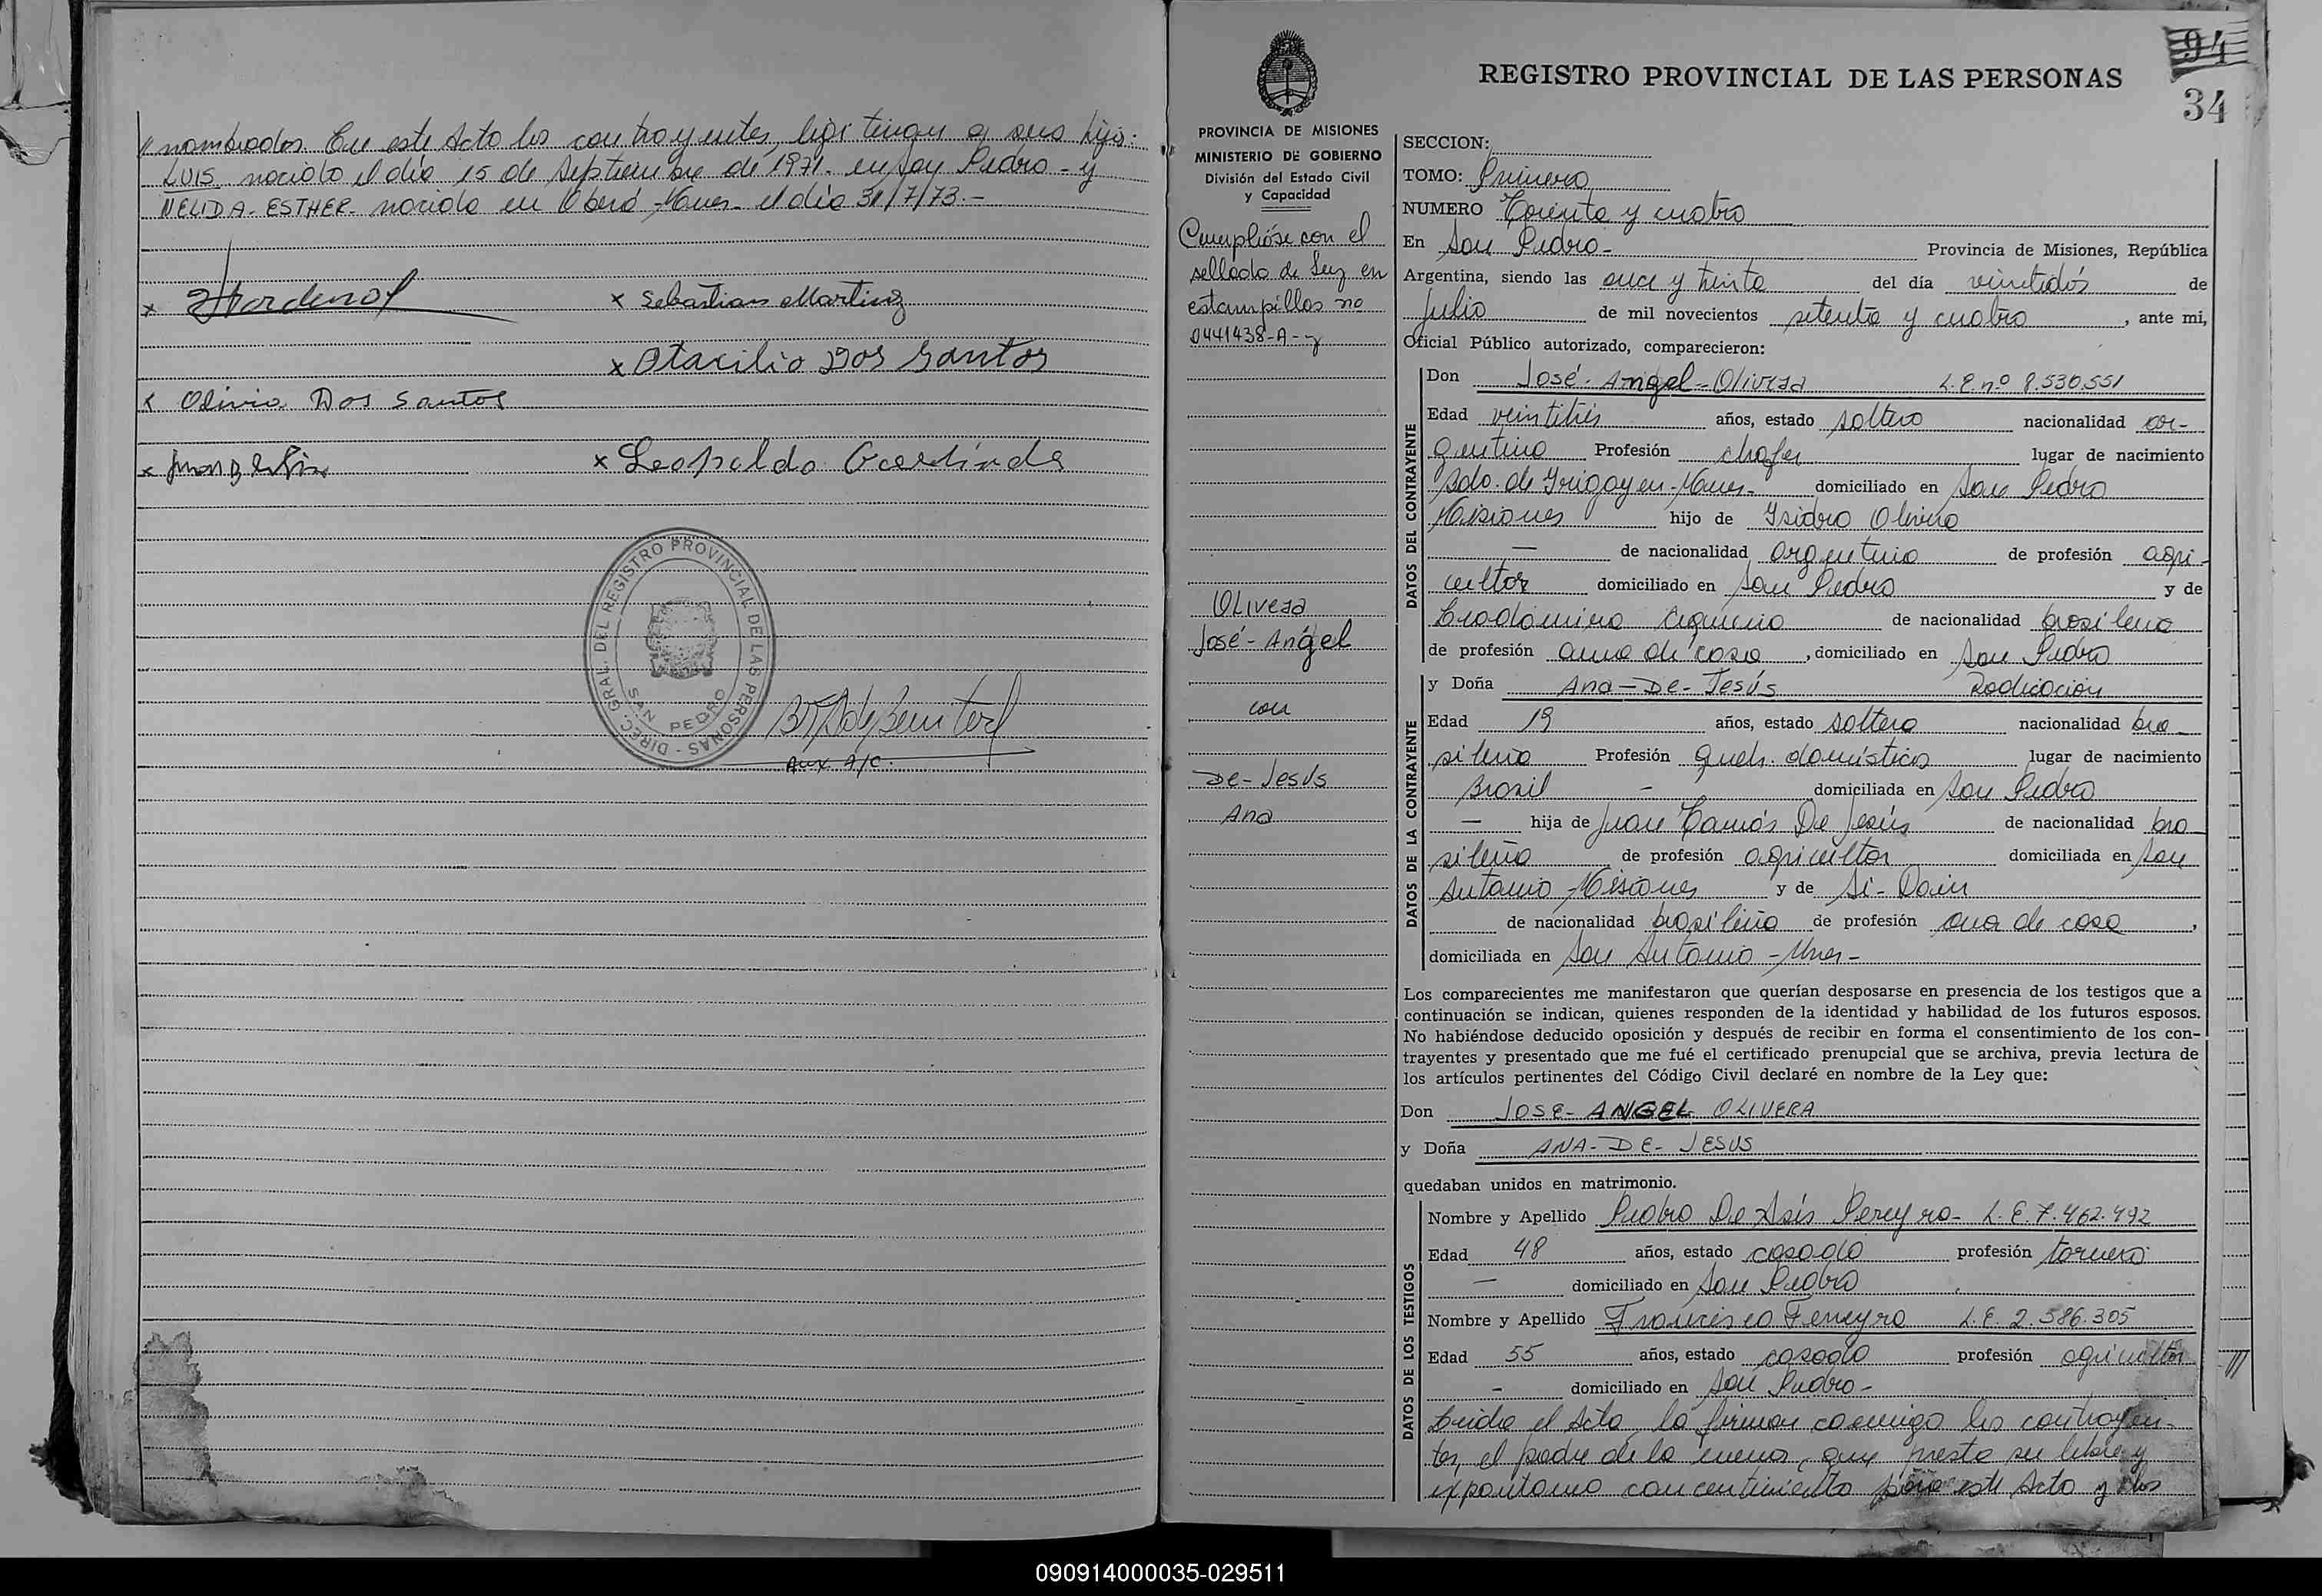 nombrados En este Acto los contrayentes, legitiman a sus hijos:
LUIS. nacido el día 15 de Septiembre de 1971. en San Pedro - y
NELIDA-ESTHER- nacida en Oberá -Mnes- el día 31/7/73.-
x
x Sebastian Martinz
x Otacilio Dos Santos
x Olivia Dos Santos
x
x Leopoldo
DIREC. GRAL. DEL REGISTRO PROVINCIAL DE LAS PERSONAS -
SAN PEDRO
Aux. A/C.
94
34
REGISTRO PROVINCIAL DE LAS PERSONAS
PROVINCIA DE MISIONES
MINISTERIO DE GOBIERNO
División del Estado Civil
y Capacidad
Cumplióse con el
sellado de Ley en
estampillas no
0441438-A-y
OLivera
José-Angel
con
De-Jesús
Ana
SECCION:
TOMO: Primero
NUMERO Treinta y cuatro
En San Pedro- Provincia de Misiones, República
Argentina, siendo las once y treinta del día veintidós de
Julio de mil novecientos setenta y cuatro, ante mi,
Oficial Público autorizado, comparecieron:
DATOS DEL CONTRAYENTE
Don José-Angel-Olivera L.E.nº 8.530.551
Edad veintitrés años, estado soltero nacionalidad ar-
gentino Profesión chofer lugar de nacimiento
Bdo. de Irigoyen-Mnes- domiciliado en San Pedro
Misiones hijo de Isidro Olivera
— de nacionalidad argentino de profesión agri-
cultor domiciliado en San Pedro y de
de nacionalidad brasileña
de profesión ama de casa, domiciliado en San Pedro
DATOS DE LA CONTRAYENTE
y Doña Ana-De-Jesús Radicación
Edad 19 años, estado soltera nacionalidad bra-
sileña Profesión queh. domésticos lugar de nacimiento
Brasil - domiciliada en San Pedro
— hija de Juan Tomás De Jesús de nacionalidad bra-
sileña de profesión agricultor domiciliada en San
Antonio -Misiones y de
de nacionalidad brasileña de profesión ama de casa,
domiciliada en San Antonio -Mnes-
Los comparecientes me manifestaron que querían desposarse en presencia de los testigos que a
continuación se indican, quienes responden de la identidad y habilidad de los futuros esposos.
No habiéndose deducido oposición y después de recibir en forma el consentimiento de los con-
trayentes y presentado que me fué el certificado prenupcial que se archiva, previa lectura de
los artículos pertinentes del Código Civil declaré en nombre de la Ley que:
Don JOSE-ANGEL OLIVERA
y Doña ANA-DE-JESUS
quedaban unidos en matrimonio.
DATOS DE LOS TESTIGOS
Nombre y Apellido Pedro De Asís Pereyra- L.E.7.462.492
Edad 48 años, estado casado profesión tornero
— domiciliado en San Pedro
Nombre y Apellido Francisco Ferreyra L.E. 2.586.305
Edad 55 años, estado casado profesión agricultor
- domiciliado en San Pedro-
Leída el Acta la firman conmigo los contrayen-
tes, el padre de la menor, que presta su libre y
expontaneo concentimiento para este Acto y los
090914000035-029511